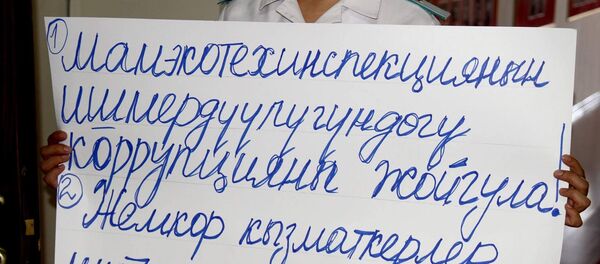 1 Мамэкотехинспекциянын
ишмердуулугундогу
коррупцияны жойгула!
2 Жемкор кызматкерлер